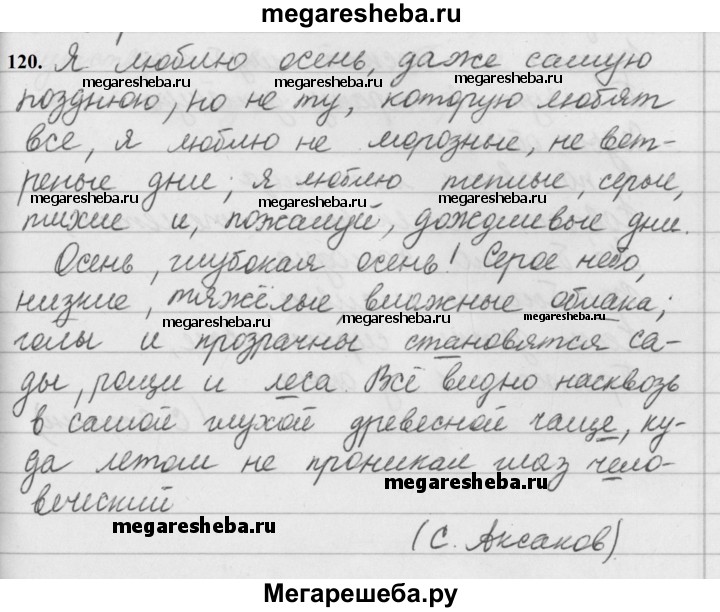 megaresheba.ru
120. Я люблю осень, даже самую
megaresheba.ru megaresheba.ru
позднюю, но не ту, которую любят
все, я люблю не морозные, не вет-
реные дни; я люблю теплые, серые,
megaresheba.ru megaresheba.ru
тихие и, пожалуй, дождливые дни.
Осень, глубокая осень! Серое небо,
низкие, тяжёлые влажные облака;
megaresheba.ru megaresheba.ru megaresheba.ru
голы и прозрачны становятся са-
ды, рощи и леса. Всё видно насквозь
в самой глухой древесной чаще, ку-
да летом не проникал глаз чело-
megaresheba.ru
веческий
megaresheba.ru
(С. Аксаков)
Мегарешеба.ру